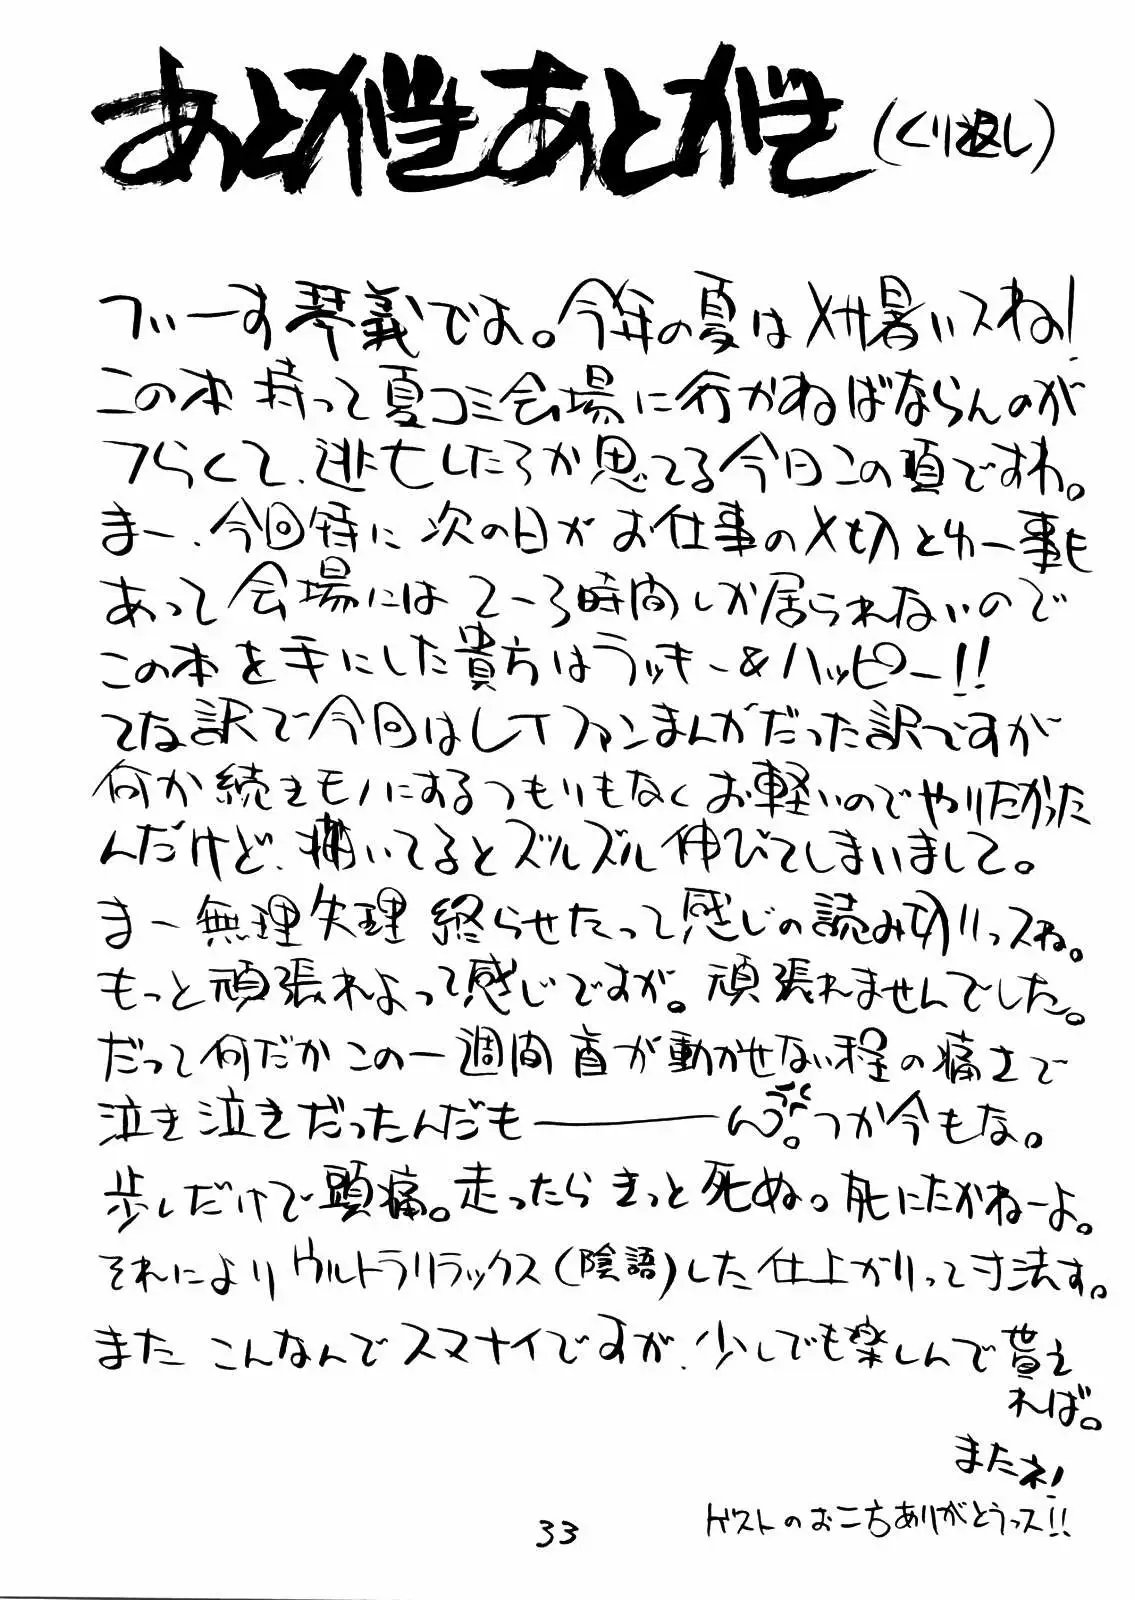 あとがきあとがき（くり返し）
ういーす琴義でよ。今年の夏はメサ暑いスね！
この本持って夏コミ会場に行かねばならんのが
つらくて、逃亡したろか思てる今日この頃ですわ。
まー、今回特に次の日がお仕事の〆切とゆー事も
あって会場には2〜3時間しか居られないので
この本を手にした貴方はラッキー＆ハッピー！！
てな訳で今回はLTファンまんがだった訳ですが
何か続きモノにするつもりもなくお軽いのでやりたかった
んだけど、描いてるとズルズル伸びてしまいまして。
まー無理矢理終らせたって感じの読み切りっスね。
もっと頑張れよって感じですが。頑張れませんでした。
だって何だかこの一週間首が動かせない程の痛さで
泣き泣きだったんだもーーーん。つか今もな。
歩しだけで頭痛。走ったらきっと死ぬ。死にたかねーよ。
それによりウルトラリラックス（陰語）した仕上がりって寸法す。
またこんなんでスマナイですが、少しでも楽しんで貰え
れば。
またネ！
ゲストのお二方ありがとうっス！！
33